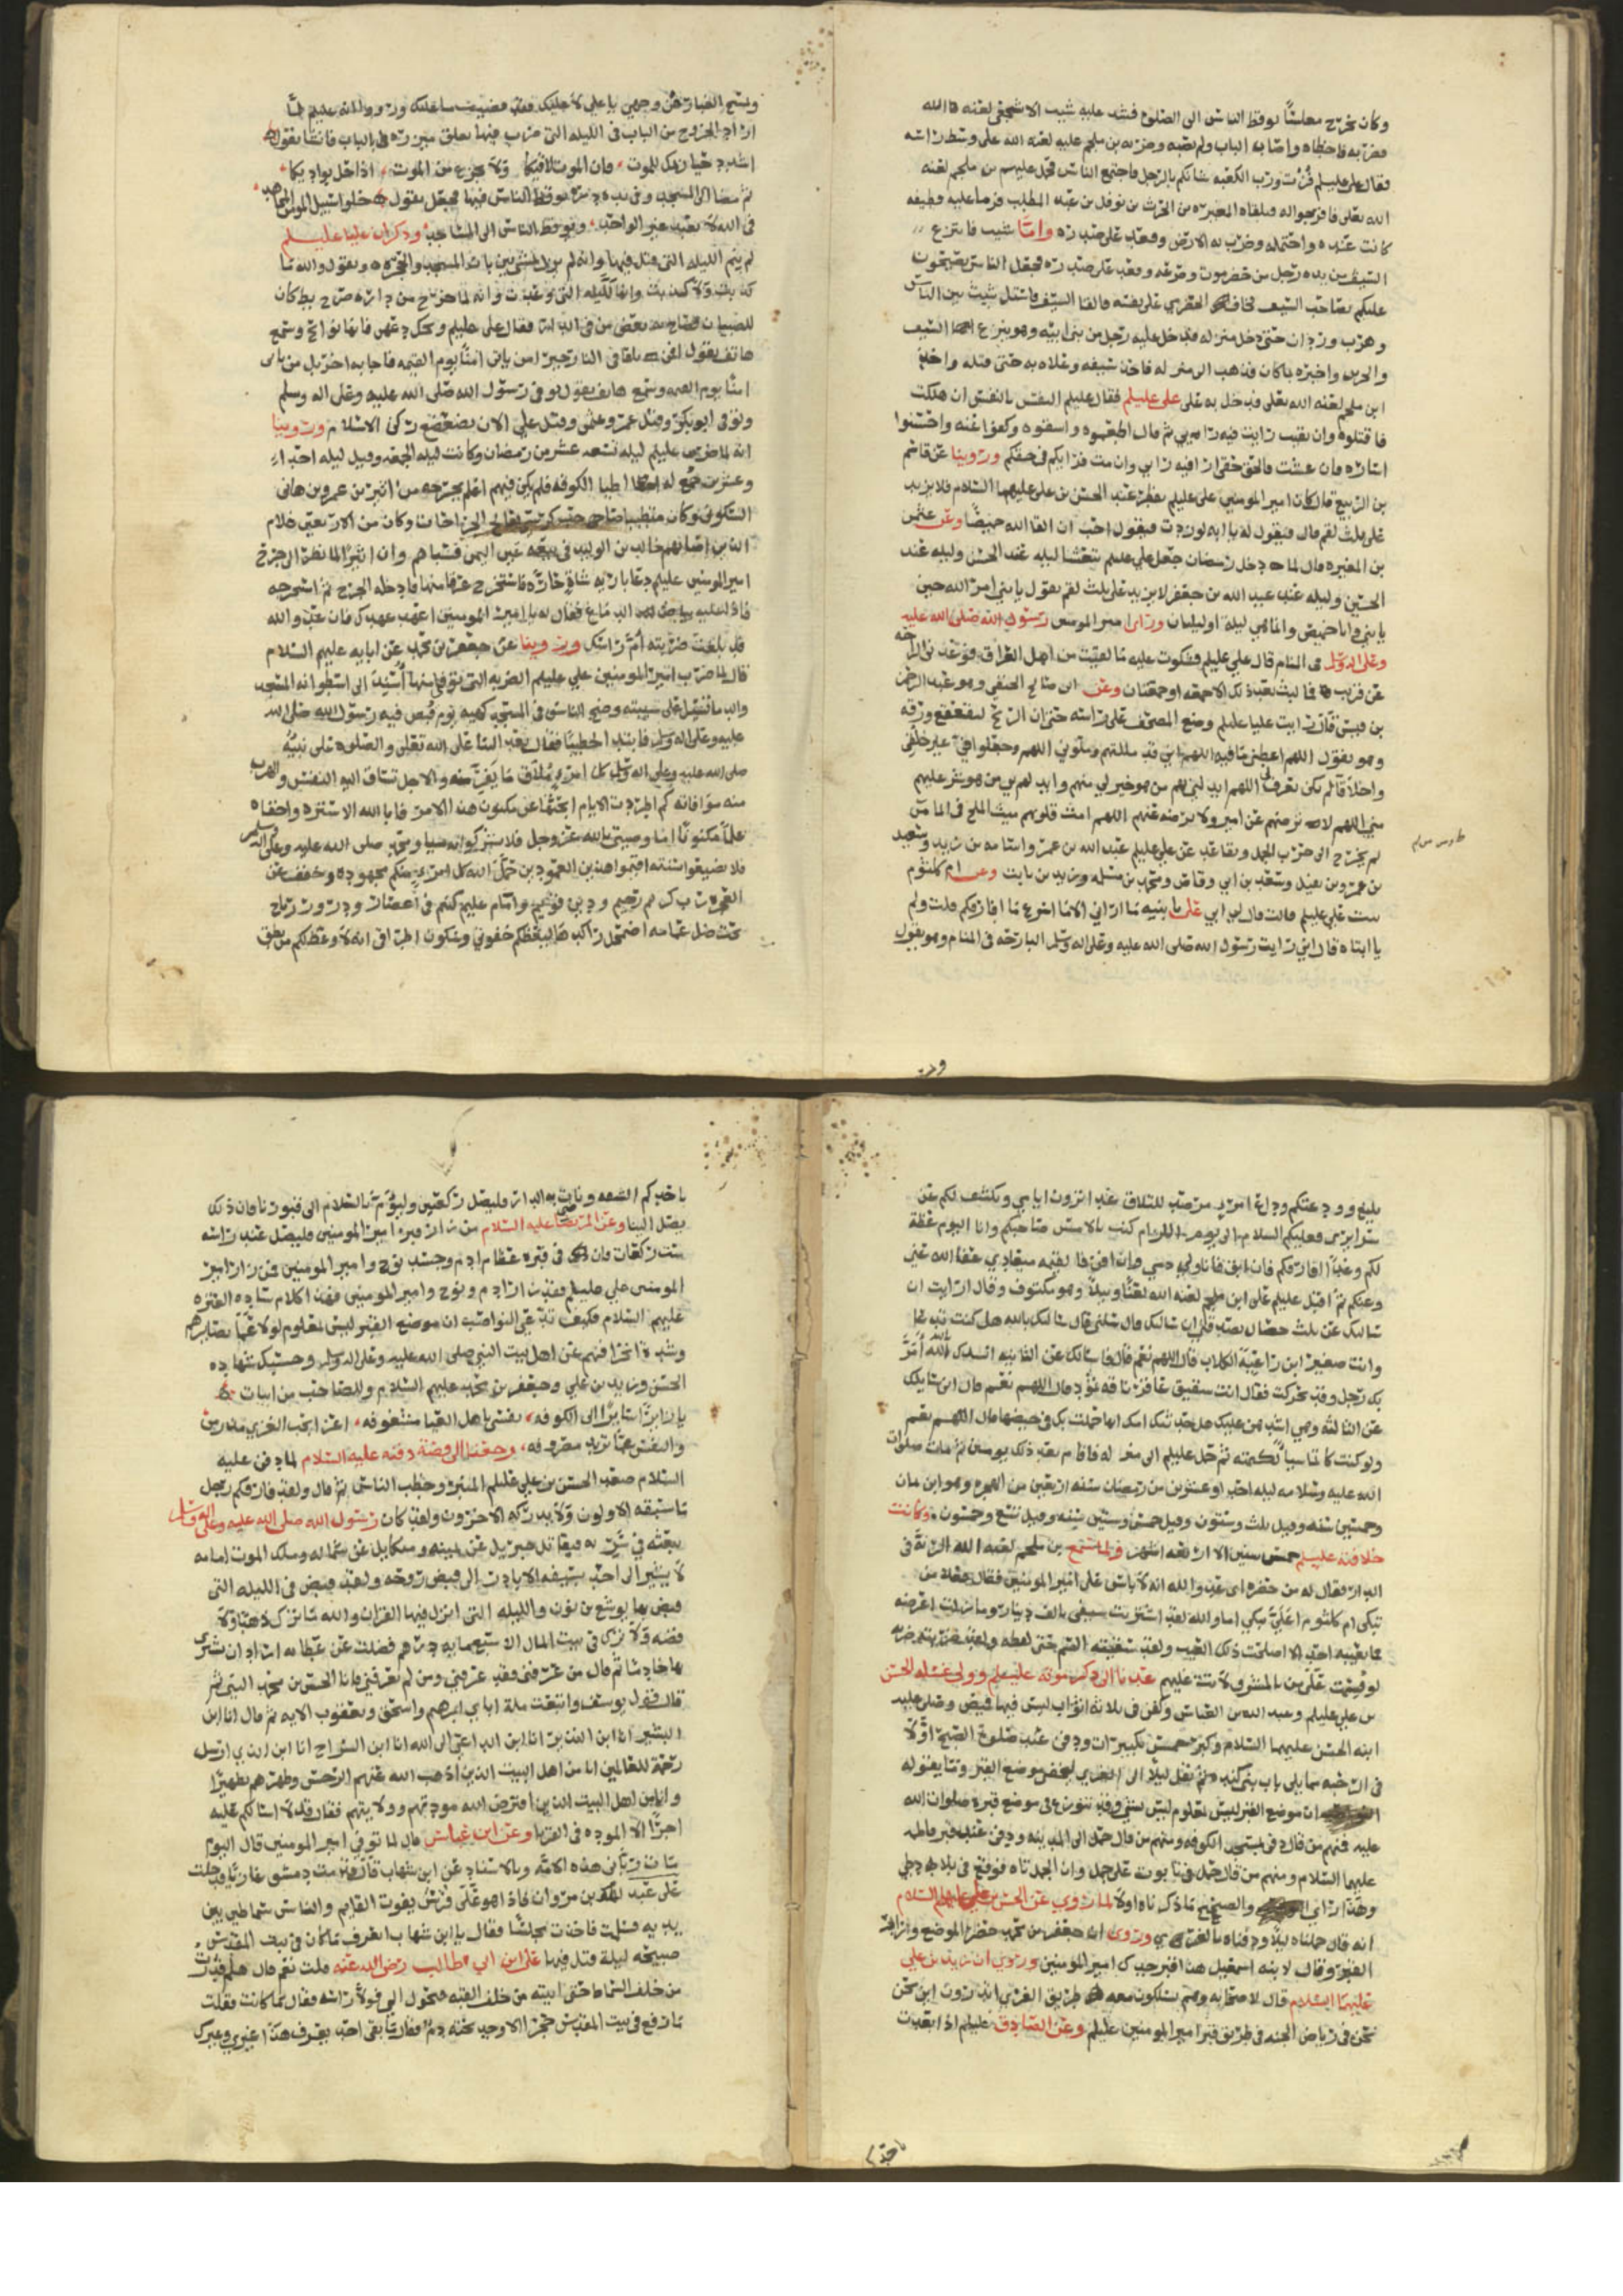 وكان يخرج مغلسًا يوقظ الناس الى الصلوة فشد عليه شبيب الاشجعي لعنه الله
فضربه فاخطاه واصابه الباب ولم يصبه وضربه بن ملجم عليه لعنه الله على وسط راسه
فقال على عليلم فزت ورب الكعبه شانكم بالرجل فاجتمع الناس فحمل عليهم بن ملجم لعنه
الله تعلى فافرجوا له فتلقاه المغيره بن الحرث بن نوفل بن عبد المطلب فرما عليه قطيفه
كانت عنده واحتمله وضرب به الارض وقعد على صدره واما شبيب فانتزع
السيف من يده رجل من حضرموت وصرعه وقعد على صدره فجعل الناس يصيحون
عليكم بصاحب السيف فخاف الحضرمي على نفسه فالقا السيف فانسل شبيب بين الناس
وهرب وردان حتى دخل منزله فدخل عليه رجل من بني ابيه وهو ينزع السيف
والحرير واخبره بما كان فذهب الى منزله فاخذ سيفه وعلاه به حتى قتله واخذ
ابن ملجم لعنه الله تعلى فدخل به على على عليلم فقال عليلم النفس بالنفس ان هلكت
فاقتلوه وان بقيت رايت فيه رايي ثم قال اطعموه واسقوه وكفوا عنه واحسنوا
اساره فان عشت فالحق حقى ارا فيه رايي وان مت فرايكم في حقكم وروينا عن قاسم
بن الربيع قال كان امير المومنين على عليلم يفطر عند الحسن بن على عليهما السلام فلا يزيد
على ثلث لقم قال فيقول له يا ابه لو زدت فيقول احب ان القا الله خميصًا وعن عثمن
بن المغيره قال لما دخل رمضان جعل على عليلم يتعشا ليله عند الحسن وليله عند
الحسين وليله عند عبد الله بن جعفر لا يزيد على ثلث لقم يقول يا بني امر الله حين
ياتيني وانا خميص وانما هي ليلة او ليلتان وراى امير المومنين رسول الله صلى الله عليه
وعلى اله وسلم في المنام قال على عليلم فشكوت عليه ما لقيت من اهل العراق فوعدني الراحه
عن قريب فما لبث بعد ذلك الا جمعه او جمعتان وعن ابي صالح الحنفي وهو عبد الرحمن
بن قيس قال رايت عليا عليلم وضع المصحف على راسه حتى ان الريح ليتقعقع ورقه
وهو يقول اللهم اعطني ما فيه اللهم اني قد مللتهم وملوني اللهم وحملوني على غير خلقي
واخلاقا لم تكن تعرف اللهم ابدلني بهم من هو خير لي منهم وابدلهم بي من هو شر عليهم
مني اللهم لا ترضهم عن امير ولا ترضه عنهم اللهم امث قلوبهم ميث الملح في الما من
لم يخرج الى حرب الجمل وتقاعد عن علي عليلم عبد الله بن عمر واسامه بن زيد وسعيد
بن عمرو بن نفيل وسعد بن ابي وقاص ومحمد بن مسلمه وزيد بن ثابت وعن ام كلثوم
بنت على عليلم قالت قال لي ابي على يا بنيه ما اراني الا ما اسرع ما افارقكم قلت ولم
يا ابتاه قال اني رايت رسول الله صلى الله عليه وعلى اله وسلم البارحه في المنام وهو يقول
ويمسح الغبار عن وجهي يا علي لا عليك فقد قضيت ما عليك وروي انه عليلم لما
اراد الخروج من الباب في الليله التي ضرب فيها تعلق ميزره في الباب فانشا يقول
اشدد حيازيمك للموت فان الموت لاقيكا ولا تجزع من الموت اذا حل بواديكا
ثم مضا الى المسجد وفي يده دره يوقظ الناس فيها فجعل يقول خلوا سبيل المومن المجاهد
في الله لا يعبد غير الواحد ويوقظ الناس الى المساجد وذكر ان عليا عليلم
لم ينم الليله التي قتل فيها وانه لم يزل يمشي بين باب المسجد والحجره ويقول والله ما
كذبت ولا كذبت وانها لليله التي وعدت وانه لما خرج من داره صرخ بط كان
للصبيان فصاح به بعض من في الدار فقال على عليلم ويحك دعهن فانها نوايح وسمع
هاتف يقول افمن يلقا في النار خير امن ياتي امنًا يوم القيمه فاجابه اخر بل من ياتى
امنًا يوم القيمه وسمع هاتف يقول توفى رسول الله صلى الله عليه وعلى اله وسلم
وتوفى ابو بكر وقتل عمر وعثمن وقتل على الان تضعضع ركن الاسلام وروينا
انه لما ضرب عليلم ليله تسعه عشر من رمضان وكانت ليله الجمعه وقيل ليله احدا
وعشرين جمع له اطبا الكوفه فلم يكن فيهم اعلم بجرحه من اثير بن عمرو بن هاني
السكوني وكان متطببا صاحب كرسي يعالج الجراحات وكان من الاربعين غلام
الذين اصابهم خالد بن الوليد في بيعه عين التمر فسباهم وان اثيرًا لما نظر الى جرح
امير المومنين عليلم دعا بريه شاةٍ حارّه فاستخرج عرقا منها فادخله الجرح ثم استخرجه
فاذا عليه بياض الدماغ فقال له يا امير المومنين اعهد عهدك فان عدو الله
قد بلغت ضربته ام راسك وروينا عن جعفر بن محمد عن ابايه عليهم السلام
قال لما ضرب امير المومنين علي عليلم الضربه التي توفى منها اُسند الى اسطوانه المسجد
والدما تسيل على شيبته وضج الناس في المسجد كهيه يوم قبض فيه رسول الله صلى الله
عليه وعلى اله وسلم فابتدا خطيبًا فقال بعد الثنا على الله تعلى والصلوه على نبيّه
صلى الله عليه وعلى اله وسلم كل امرء ملاق ما يفر منه والاجل تساق اليه النفس والهرب
منه موافاته كم اطردت الايام ابحثها عن مكنون هذا الامر فابا الله الا ستره واخفاه
علمًا مكنونًا اما وصيتي بالله عز وجل فلا تشركوا به شيا ومحمد صلى الله عليه وعلى اله وسلم
فلا تضيعوا سنته اقيموا هذين العمودين حمل الله كل امرءٍ منكم مجهوده وخفف عن
العجزه رب كريم رحيم ودين قويم وامام عليم كنتم في اعصار ودرور رياح
تحت ظل غمامه اضمحل راكدها ليعظكم خفوتي وسكون اطرافي انه لاوعظ لكم من نطق
بليغ وودعتكم وداع امرءٍ مرصد للتلاق غدا ترون ايامي ويكشف لكم عن
سرايري فعليكم السلام الى يوم المرام كنت بالامس صاحبكم وانا اليوم عظة
لكم وغدًا افارقكم فان ابق فانا ولي دمي وان افن فالقيمه ميعادي عفا الله عني
وعنكم ثم اقبل عليلم على ابن ملجم لعنه الله لعنًا وبيلًا وهو مكتوف وقال ارايت ان
سالتك عن ثلث خصال تصدقني قال سلني قال سالتك بالله هل كنت تدعا
وانت صغير ابن راعية الكلاب قال اللهم نعم قال فاسالك عن الثانيه انشدك الله أمَرَّ
بك رجل وقد تحركت فقال انت شقيق عاقر ناقه ثمود قال اللهم نعم قال اني سايلك
عن الثالثه وهي اشدهن عليك هل حدثتك امك انها حملت بك في حيضها قال اللهم نعم
ولو كنت كاتمًا شيًا لكتمته ثم حمل عليلم الى منزله فاقام بعد ذلك يومين ثم مات صلوات
الله عليه وسلامه ليله احد او عشرين من رمضان سنه اربعين من الهجره وهو ابن ثمان
وخمسين سنه وقيل ثلث وستون وقيل خمس وستين سنه وقيل تسع وخمسون وكانت
خلافته عليلم خمس سنين الا اربعه اشهر ولما سمع بن ملجم لعنه الله الرنة في
الدار فقال له من حضره اى عدو الله انه لا باس على امير المومنين فقال فعلام
تبكي ام كلثوم اعليَّ تبكي اما والله لقد اشتريت سيفى بالف دينار وما زلت اعرضه
فما يعيبه احد الا اصلحت ذلك العيب ولقد سقيته السم حتى لفظه ولقد ضربته ضربه
لو قسمت على من بالمشرق لاتت عليهم عدنا الى ذكر موته عليلم وولى غسله الحسن
بن علي عليلم وعبد الله بن العباس وكفن في ثلاثه اثواب ليس فيها قميص وصلى عليه
ابنه الحسن عليهما السلام وكبر خمس تكبيرات ودفن عند صلوة الصبح اوّلًا
في الرحبه مما يلي باب بني كنده ثم نقل ليلًا الى الغري ليخفى موضع القبر وما يقوله
ان موضع القبر ليس بمعلوم ليس بشي وقد تنوزع في موضع قبره صلوات الله
عليه فمنهم من قال دفن بمسجد الكوفه ومنهم من قال حمل الى المدينه ودفن عند قبر فاطمه
عليها السلام ومنهم من قال حمل في تابوت على جمل وان الجمل تاه فوقع في بلاد طي
وهذا اراى والصحيح ما ذكرناه اولًا لما روي عن الحسن بن علي عليهم السلام
انه قال حملناه ليلًا ودفناه بالغري وروى ان جعفر بن محمد حضر الموضع وزار
القبر وقال لابنه اسمعيل هذا قبر جدك امير المومنين وروى ان زيد بن علي
عليهما السلام قال لاصحابه وهم يسلكون معه طريق الغري اتدرون اين نحن
نحن في رياض الجنه في طريق قبر امير المومنين عليلم وعن الصادق عليلم اذا بعدت
باحدكم الشقه ونات به الدار فليصل ركعتين وليؤم بالسلام الى قبورنا فان ذلك
يصل الينا وعن المرتضا عليه السلام من زار قبر امير المومنين فليصل عند راسه
ست ركعات فان في قبره عظام ادم وجسد نوح وامير المومنين فمن زار امير
المومنين على عليلم فقد زار ادم ونوح وامير المومنين فهذا كلام ساده العتره
عليهم السلام فكيف تدعي النواصب ان موضع القبر ليس بمعلوم لولا عما بصايرهم
وشدة انحرافهم عن اهل بيت النبي صلى الله عليه وعلى اله وسلم وحسبك شهاده
الحسن وزيد بن علي وجعفر بن محمد عليهم السلام وللصاحب من ابيات
يا زايرًا سايرًا الى الكوفه نفسي باهل العبا مشغوفه اعن ايجب الغري
والنفس عما تريد مصروفه رجعنا الى قصة دفنه عليه السلام لما دفن عليه
السلام صعد الحسن بن علي عليلم المنبر وخطب الناس ثم قال ولقد فارقكم رجل
ما سبقه الاولون ولا يدركه الاخرون ولقد كان رسول الله صلى الله عليه وعلى اله وسلم
يبعثه في سريه فيقاتل جبريل عن يمينه وميكايل عن شماله وملك الموت امامه
لا يشير الى احد بسيفه الا بادرت الى قبض روحه ولقد قبض في الليله التي
قبض بها يوشع بن نون والليله التي انزل فيها القران والله ما ترك ذهبًا ولا
فضه ولا ترك في بيت المال الا سبعمايه درهم فضلت عن عطايه اراد ان يشرى
بها خادمًا ثم قال من عرفني فقد عرفني ومن لم يعرفني فانا الحسن بن محمد النبي ثم
قال قول يوسف واتبعت ملة ابايي ابرهيم واسحق ويعقوب الايه ثم قال انا ابن
البشير انا ابن النذير انا ابن الداعي الى الله انا ابن السراج انا ابن الذي ارسل
رحمة للعالمين انا من اهل البيت الذين اذهب الله عنهم الرجس وطهرهم تطهيرًا
وانا من اهل البيت الذين افترض الله مودتهم وولايتهم فقال قل لا اسالكم عليه
اجرًا الا الموده في القربا وعن ابن عباس قال لما توفي امير المومنين قال اليوم
مات رباني هذه الامه وبالاسناد عن ابن شهاب قال قدمت دمشق غازيًا فدخلت
على عبد الملك بن مروان فاذا هو على فرش يفوت القايم والناس سماطين بين
يديه فسلمت فاخذت مجلسًا فقال يا ابن شهاب اتعرف ما كان في بيت المقدس
صبيحه ليلة قتل فيها على ابن ابي طالب رضى الله عنه قلت نعم قال هلم فقمت
من خلف السماط حتى اتيته من خلف القبه فتحول الي فولا راسه فقال بما كانت فقلت
ما رفع في بيت المقدس حجر الا وجد تحته دم فقال ما بقى احد يعرف هذا غيري وغيرك